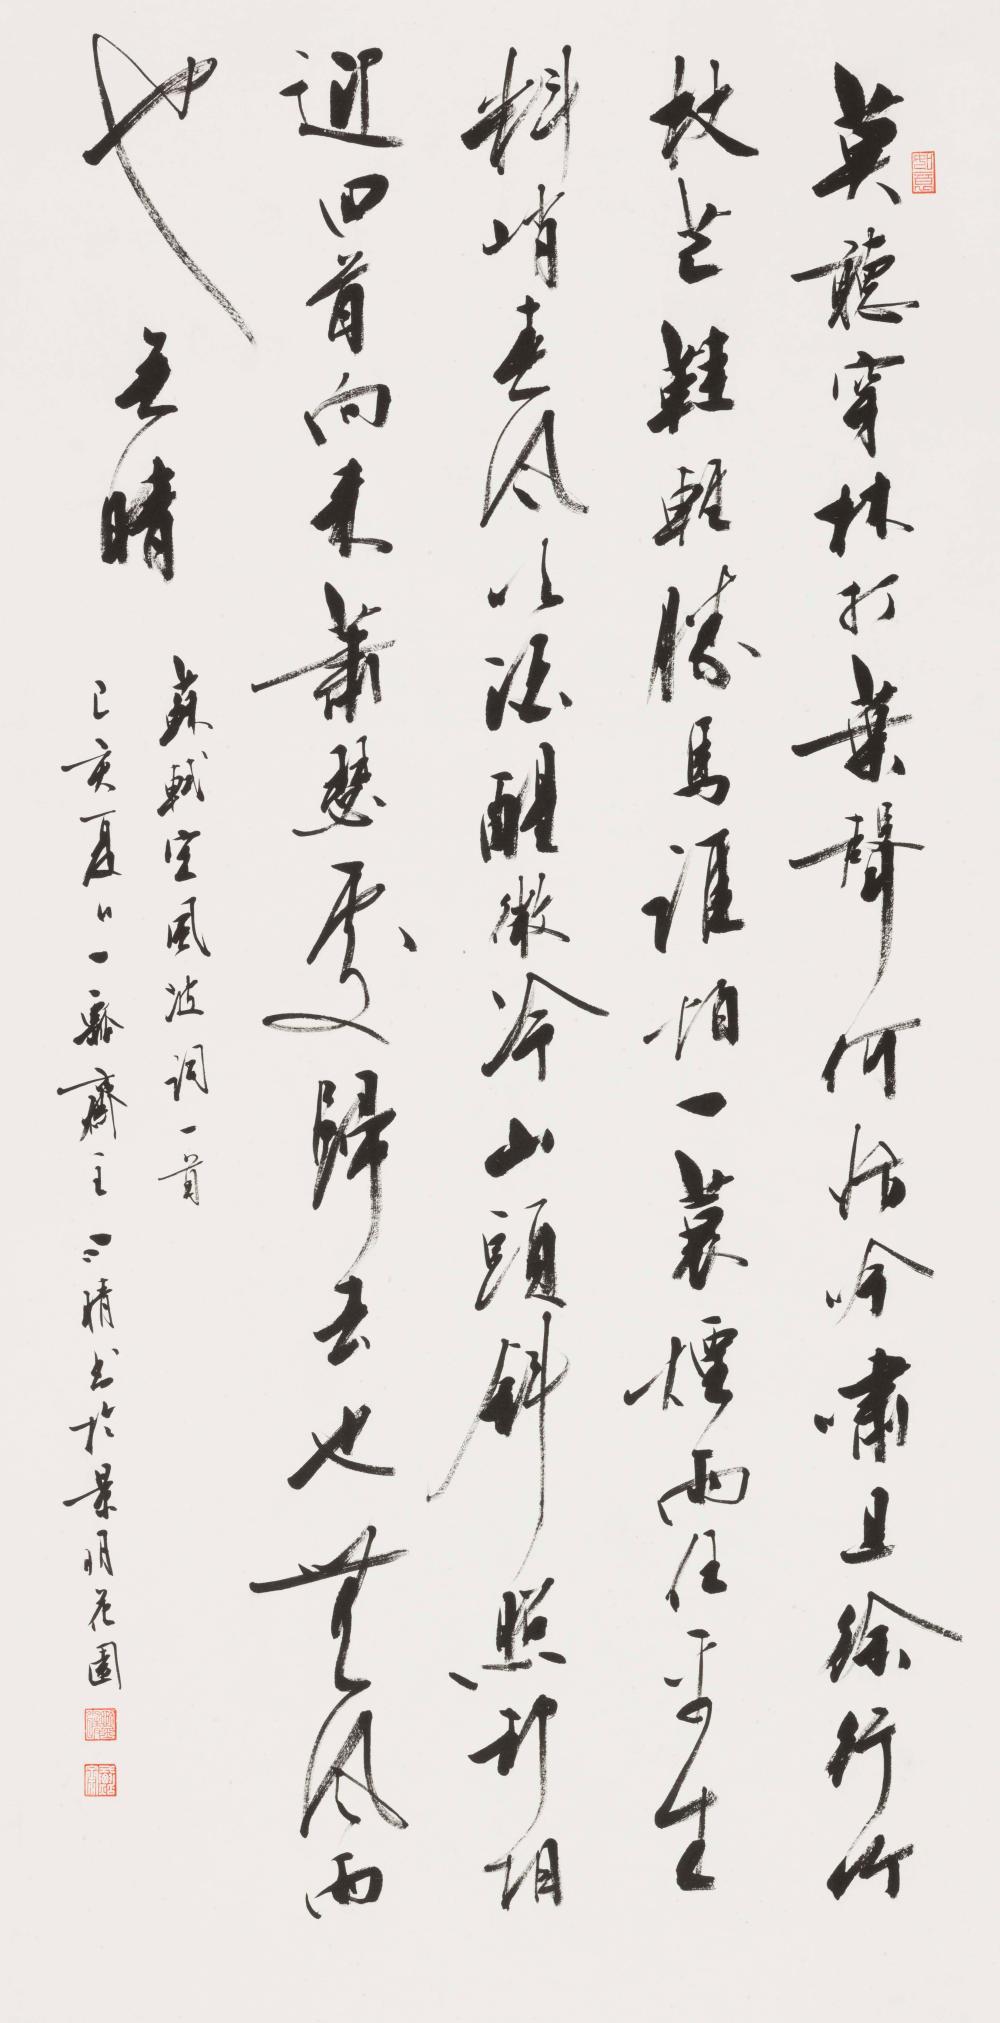 莫聽穿林打葉聲何妨吟嘯且徐行竹
杖芒鞋輕勝馬誰怕一蓑煙雨任平生
料峭春風吹酒醒微冷山頭斜照却相
迎回首向来蕭瑟處歸去也無風雨
也无晴
蘇軾定風波詞一首
己亥夏日一齋主晴书於景明花園